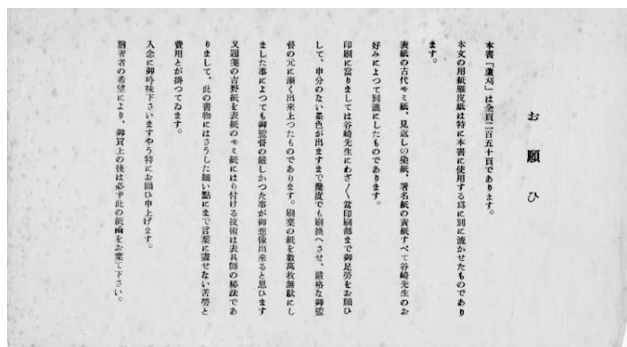 お願ひ
本書「蘆刈」は全頁二百五十頁であります。
本文の用紙雁皮紙は特に本書に使用する爲に別に漉かせたものであり
ます。
表紙の古代モミ紙、見返しの染紙、署名紙の表紙すべて谷崎先生のお
好みによつて別漉にしたものであります。
印刷に當りましては谷崎先生にわざ〳〵當印刷部まで御足勞をお願ひ
して、申分のない墨色が出ますまで幾度でも刷換へさせ、嚴格な御監
督の元に漸く出來上つたものであります。刷棄の紙を數萬枚無駄にし
ました事によつても御監督の嚴しかつた事が御想像出來ると思ひます
又題簽の吉野紙を表紙のモミ紙にはり付ける技術は表具師の秘法であ
りまして、此の書物にはさうした細い點にまで言葉に盡せない苦勞と
費用とが掛つてゐます。
入念に御吟味下さいますやう特にお願ひ申上げます。
尚著者の希望により、御買上の後は必ず此の紙函をお棄て下さい。